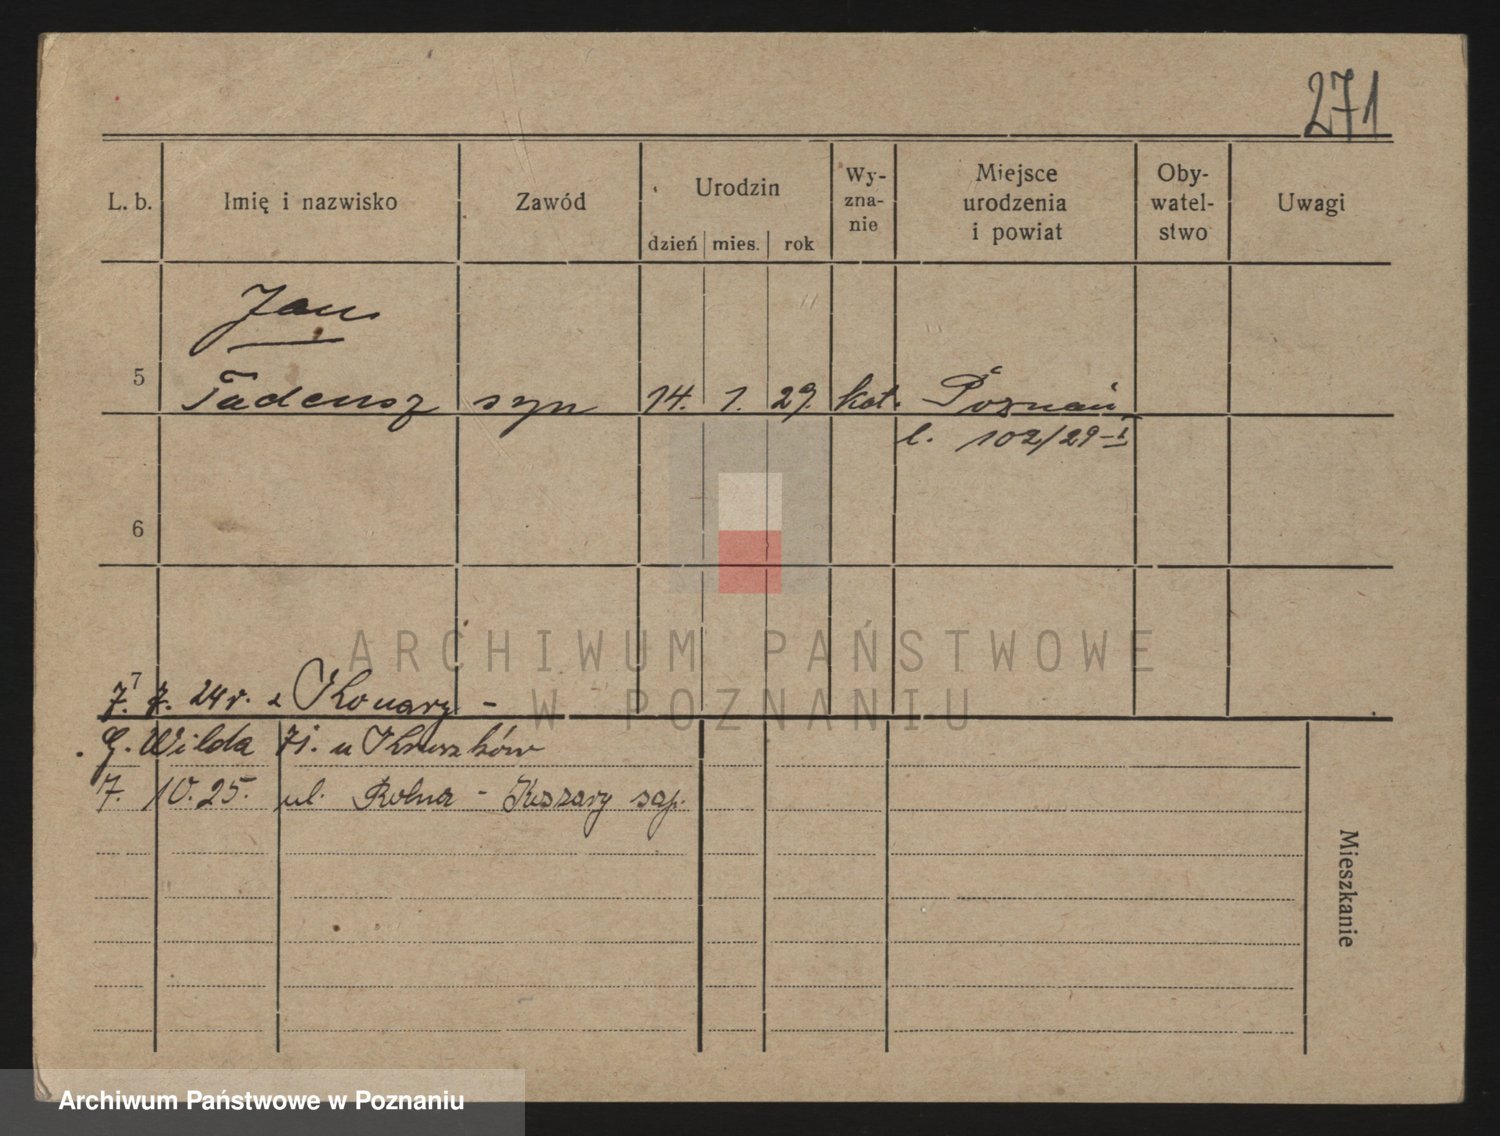 271
L. b. Imię i nazwisko Zawód Urodzin dzień mies. rok Wy-zna-nie Miejsce urodzenia i powiat Oby-watel-stwo Uwagi
Jan
5 Tadeusz syn 14. 1. 29. kat. Poznań
l. 102/29-I
6
ARCHIWUM PAŃSTWOWE
W POZNANIU
7
7. 7. 24 r. z Konary -
G. Wilda 71. u Kruszków
7. 10. 25. ul. Rolna - Koszary sap.
Mieszkanie
Archiwum Państwowe w Poznaniu